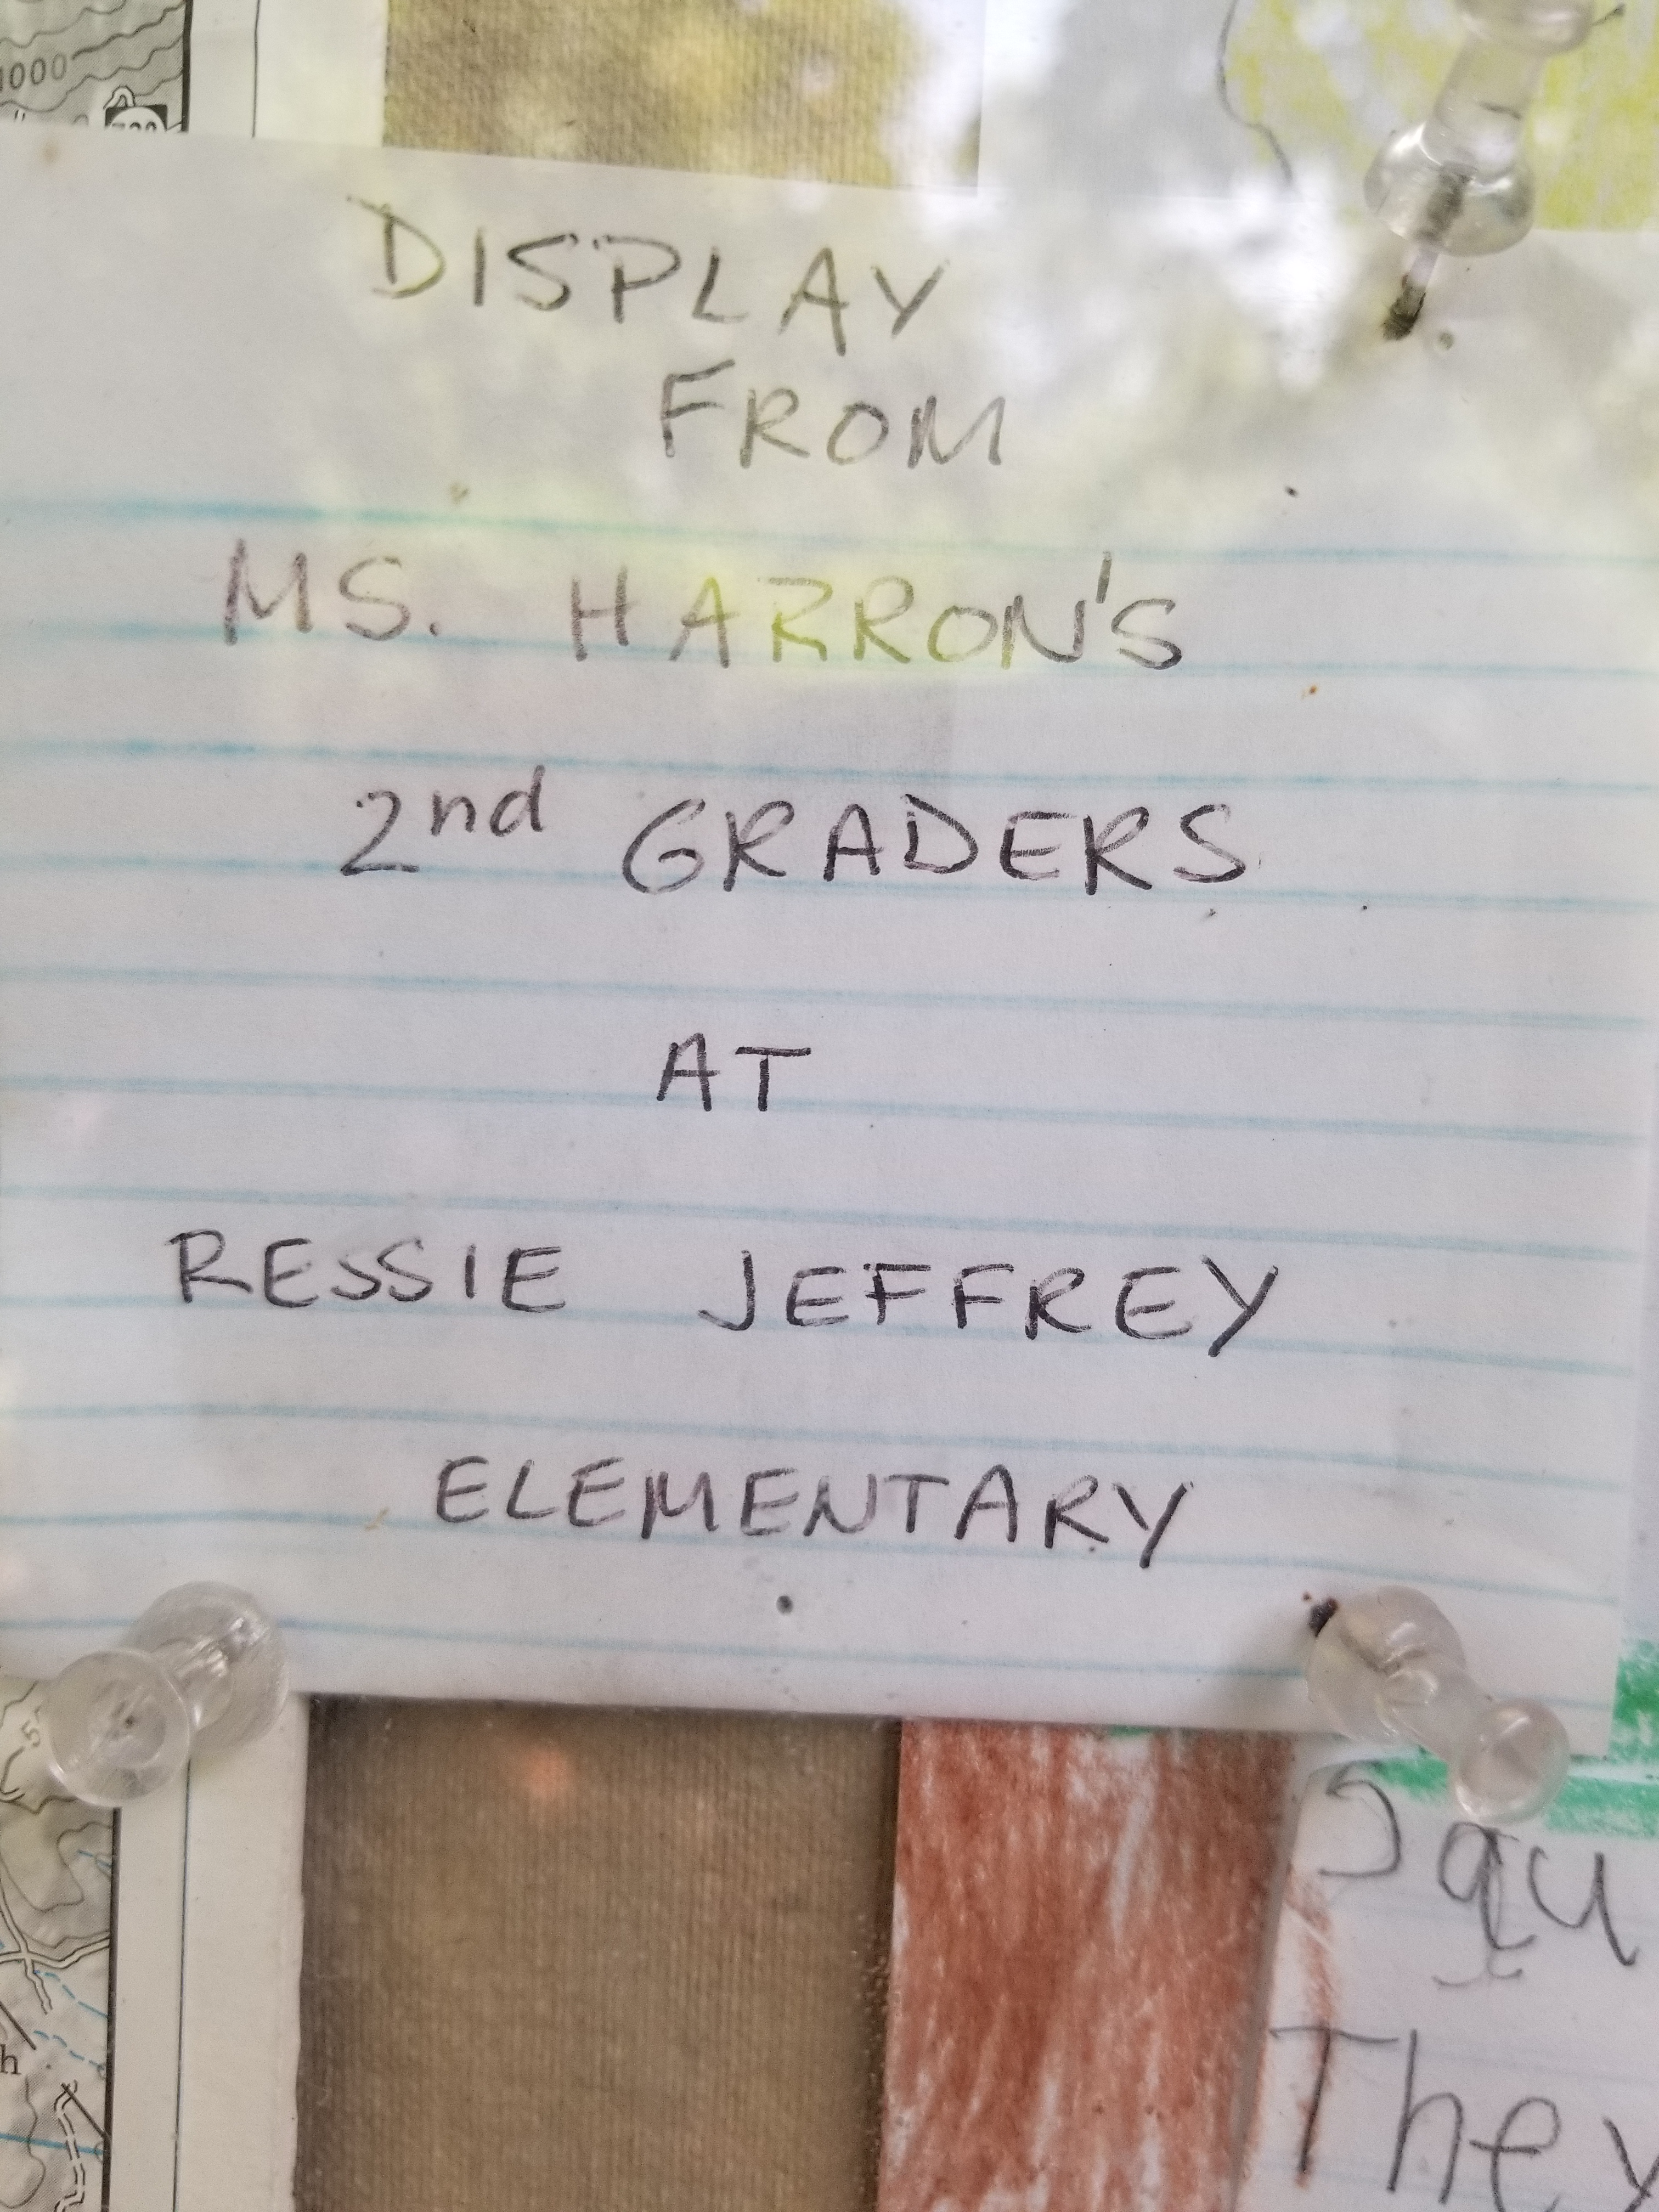 1000
DISPLAY
FROM
MS. HARRON'S
2nd GRADERS
AT
RESSIE JEFFREY
ELEMENTARY
Squ
They
h